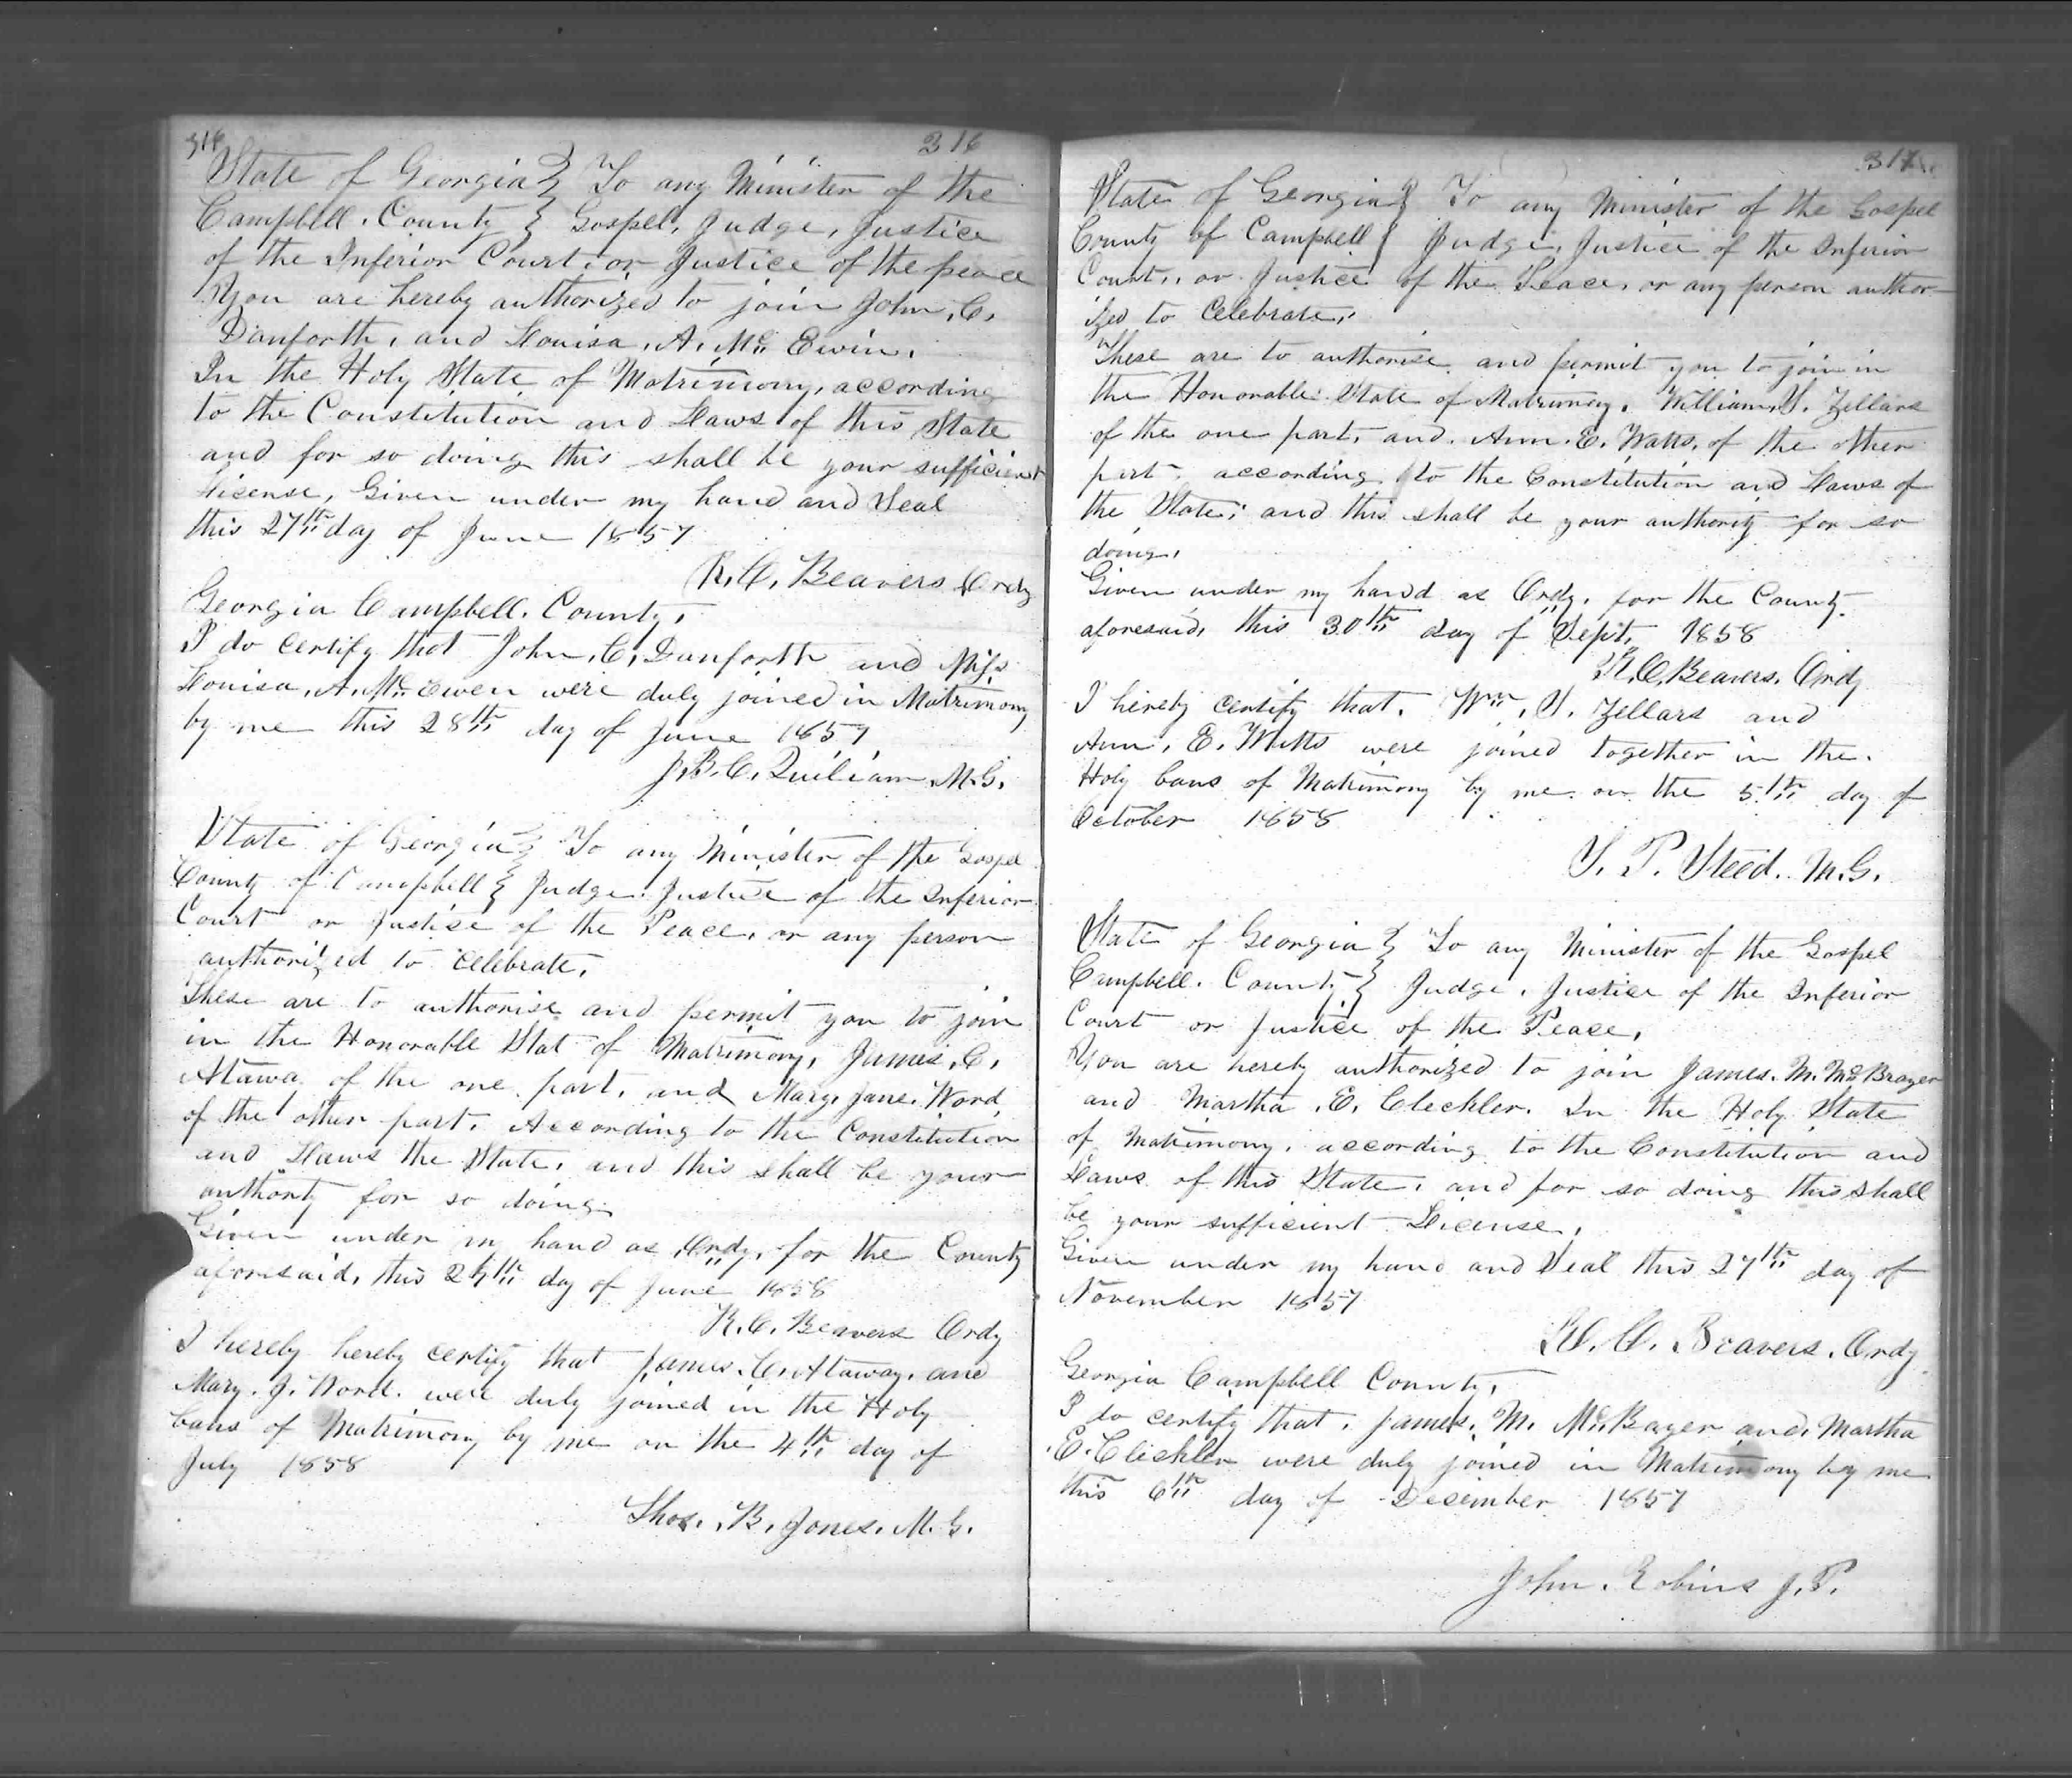 316 316
State of Georgia } To any Minister of the
Campbell. County } Gospel, Judge, Justice
of the Inferior Court, or Justice of the peace
You are hereby authorized to join John, C,
Danforth, and Louisa, A, Mc Ewin,
In the Holy State of Matrimony, according
to the Constitution and Laws of this State
and for so doing this shall be your sufficient
license, Given under my hand and Seal
this 27th day of June 1857
R, C, Beavers Ordy
Georgia Campbell. County,
I do certify that John, C, Danforth and Miss
Louisa, A, Mc Ewen were duly joined in Matrimony
by me this 28th day of June 1857
J, B, C, Quiliam M.G.
State of Georgia } To any Minister of the Gospel
County of Campbell } Judge Justice of the Inferior
Court or Justice of the Peace, or any person
authorized to celebrate,
These are to authorise and permit you to join
in the Honorable Stat of Matrimony, James, C,
Atawa of the one part, and Mary, Jane. Word,
of the other part, According to the Constitution
and Laws the State, and this shall be your
authority for so doing
Given under m hand as Ordy, for the County
aforesaid, this day of June 1858
R. C. Beavers Ordy
I hereby hereby certify that James. C, Ataway, and
Mary. J. Word. were duly joined in the Holy
bans of Matrimony by me on the 4th day of
July 1858
Thos. B. Jones. M. G.
317
State of Georgia } To any Minister of the Gospel
County of Campbell } Judge, Justice of the Inferior
Court, or Justice of the Peace, or any person author-
ized to Celebrate,
These are to authorise and permit you to join in
the Honorable State of Matrimony, William, S. Zellars
of the one part, and. Ann. E. Watts, of the other
part, according to the Constitution and Laws of
the State; and this shall be your authority for so
doing,
Given under my hand as Ordy, for the County
aforesaid, this 30th day of Sept, 1858
R. C. Beavers. Ordy
I hereby certify that. Wm, S. Zellars and
Ann, E. Watts were joined together in the
Holy bans of Matrimony by me on the 5th day of
October 1858
S. P. Steed. M. G.
State of Georgia } To any Minister of the Gospel
Campbell. County } Judge, Justice of the Inferior
Court or Justice of the Peace,
You are hereby authorized to join James. M. Mc Brayer
and Martha, E. Cleckler. In the Holy State
of Matrimony, according to the Constitution and
Laws of this State, and for so doing this shall
be your sufficient License,
Given under my hand and Seal this 27th day of
November 1857
R. C. Beavers. Ordy
Georgia Campbell County,
I do certify that, James, M. Mc Bayer and Martha
E. Cleckler were duly joined in Matrimony by me
this 6th day of December 1857
John. Robins J. P.